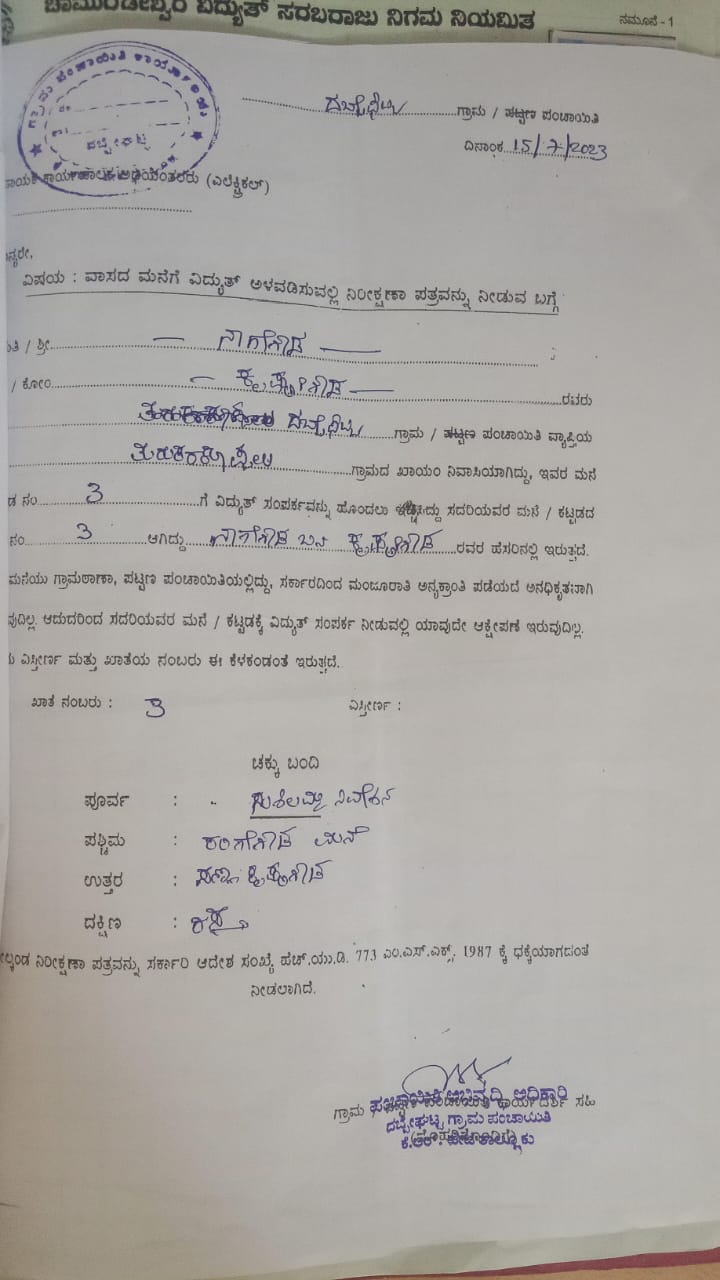 ಚಾಮುಂಡೇಶ್ವರಿ ವಿದ್ಯುತ್ ಸರಬರಾಜು ನಿಗಮ ನಿಯಮಿತ
ನಮೂನೆ - 1
ಗ್ರಾಮ ಪಂಚಾಯಿತಿ ಕಾರ್ಯಾಲಯ
ದಬ್ಬೇಘಟ್ಟ
ದಬ್ಬೇಘಟ್ಟ ಗ್ರಾಮ / ಪಟ್ಟಣ ಪಂಚಾಯಿತಿ
ದಿನಾಂಕ 15/7/2023
ಕಾರ್ಯಪಾಲಕ ಅಭಿಯಂತರರು (ಎಲೆಕ್ಟ್ರಿಕಲ್)
ವಿಷಯ : ವಾಸದ ಮನೆಗೆ ವಿದ್ಯುತ್ ಅಳವಡಿಸುವಲ್ಲಿ ನಿರೀಕ್ಷಣಾ ಪತ್ರವನ್ನು ನೀಡುವ ಬಗ್ಗೆ
/ ಶ್ರೀ ನಾಗೇಗೌಡ
/ ಕೋಂ ಕೃಷ್ಣೇಗೌಡ ರವರು
ದಬ್ಬೇಘಟ್ಟ ಗ್ರಾಮ / ಪಟ್ಟಣ ಪಂಚಾಯಿತಿ ವ್ಯಾಪ್ತಿಯ
ಗ್ರಾಮದ ಖಾಯಂ ನಿವಾಸಿಯಾಗಿದ್ದು, ಇವರ ಮನೆ
ನಂ 3 ಗೆ ವಿದ್ಯುತ್ ಸಂಪರ್ಕವನ್ನು ಹೊಂದಲು ಇಚ್ಛಿಸಿದ್ದು ಸದರಿಯವರ ಮನೆ / ಕಟ್ಟಡದ
ನಂ 3 ಆಗಿದ್ದು ನಾಗೇಗೌಡ ಬಿನ್ ಕೃಷ್ಣೇಗೌಡ ರವರ ಹೆಸರಿನಲ್ಲಿ ಇರುತ್ತದೆ.
ಮನೆಯು ಗ್ರಾಮಠಾಣಾ, ಪಟ್ಟಣ ಪಂಚಾಯಿತಿಯಲ್ಲಿದ್ದು, ಸರ್ಕಾರದಿಂದ ಮಂಜೂರಾತಿ ಅನ್ಯಕ್ರಾಂತಿ ಪಡೆಯದೆ ಅನಧಿಕೃತವಾಗಿ
ಆದುದರಿಂದ ಸದರಿಯವರ ಮನೆ / ಕಟ್ಟಡಕ್ಕೆ ವಿದ್ಯುತ್ ಸಂಪರ್ಕ ನೀಡುವಲ್ಲಿ ಯಾವುದೇ ಆಕ್ಷೇಪಣೆ ಇರುವುದಿಲ್ಲ.
ವಿಸ್ತೀರ್ಣ ಮತ್ತು ಖಾತೆಯ ನಂಬರು ಈ ಕೆಳಕಂಡಂತೆ ಇರುತ್ತದೆ.
ಖಾತೆ ನಂಬರು : 3 ವಿಸ್ತೀರ್ಣ :
ಚಕ್ಕು ಬಂದಿ
ಪೂರ್ವ : ಸುಶೀಲಮ್ಮ ನಿವೇಶನ
ಪಶ್ಚಿಮ : ರಂಗೇಗೌಡ ಮನೆ
ಉತ್ತರ : ಸಣ್ಣ ಕೃಷ್ಣೇಗೌಡ
ದಕ್ಷಿಣ : ರಸ್ತೆ
ನಿರೀಕ್ಷಣಾ ಪತ್ರವನ್ನು ಸರ್ಕಾರಿ ಆದೇಶ ಸಂಖ್ಯೆ ಹೆಚ್.ಯು.ಡಿ. 773 ಎಂ.ಎನ್.ಎಕ್ಸ್. 1987 ಕ್ಕೆ ಧಕ್ಕೆಯಾಗದಂತೆ
ನೀಡಲಾಗಿದೆ.
ಗ್ರಾಮ ಪಂಚಾಯಿತಿ ಅಭಿವೃದ್ಧಿ ಅಧಿಕಾರಿ ಸಹಿ
ದಬ್ಬೇಘಟ್ಟ ಗ್ರಾಮ ಪಂಚಾಯಿತಿ
ಕೆ.ಆರ್. ಪೇಟೆ ತಾಲ್ಲೂಕು